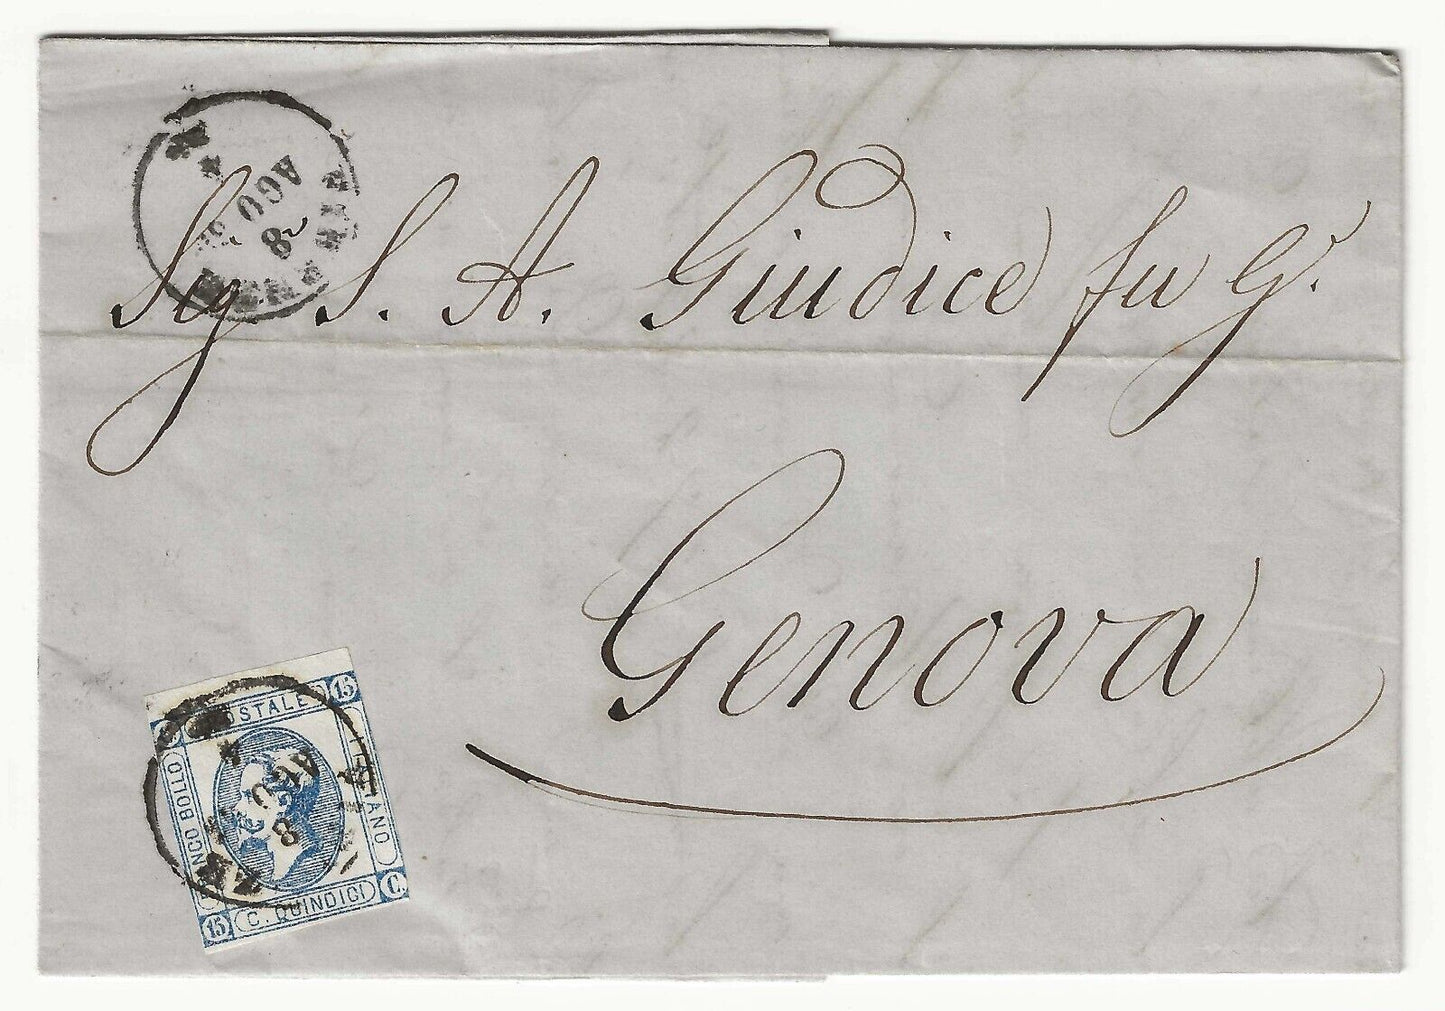 AGO
8
Sig S. A. Giudice fu G.
Genova
POSTALE 15
FRANCO BOLLO
ITALIANO
AGO
8
15 C. QUINDICI C.